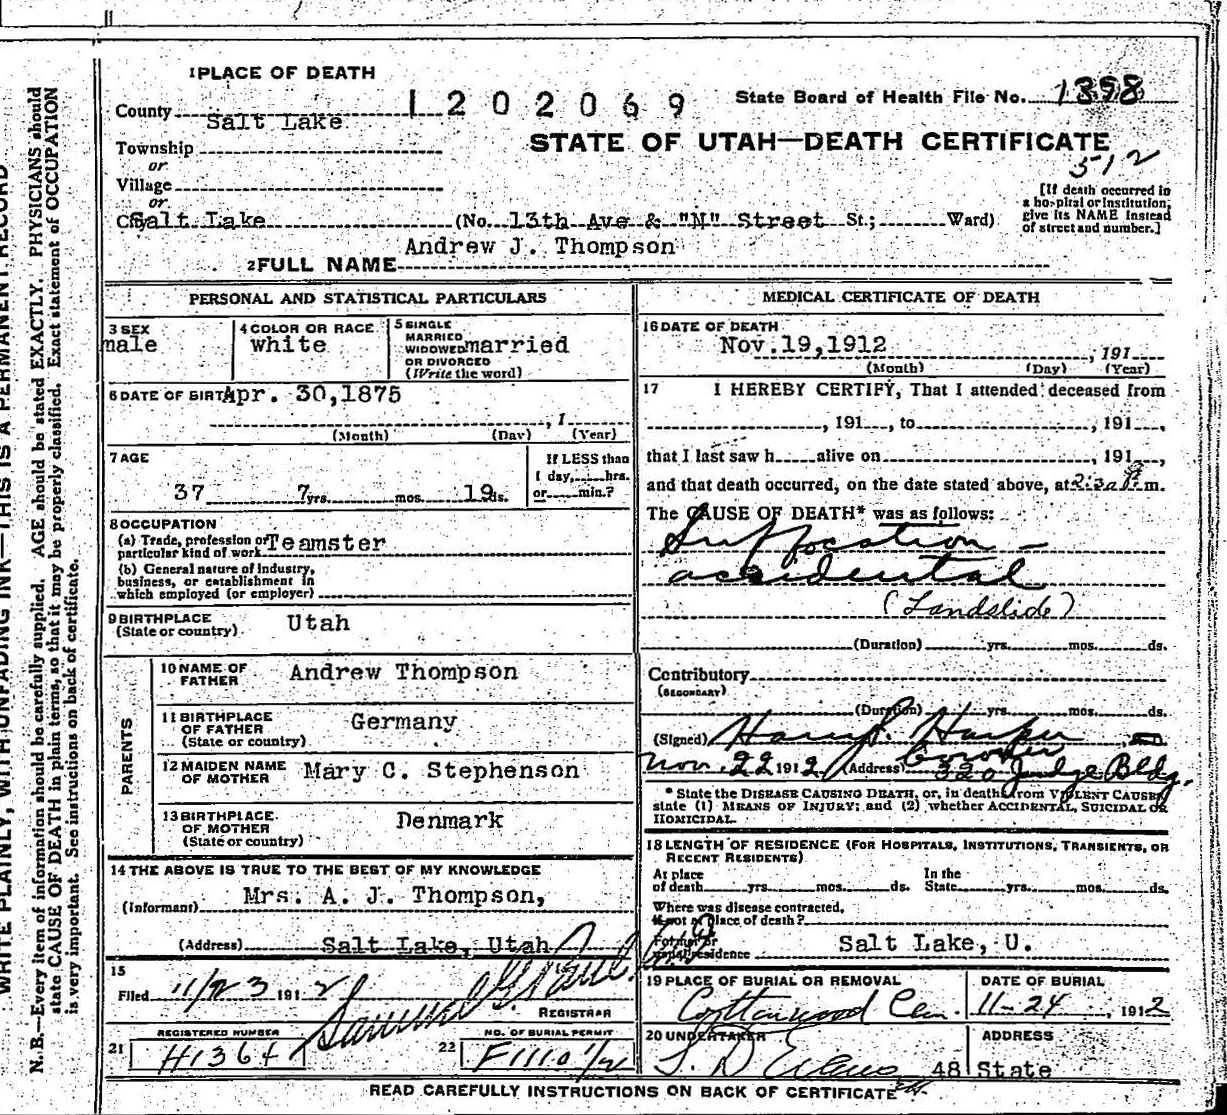 1 PLACE OF DEATH
County Salt Lake
1202069
State Board of Health File No. 1398
STATE OF UTAH—DEATH CERTIFICATE
512
Township
or
Village
or
City Salt Lake (No. 13th Ave & "N" Street St.; Ward)
[If death occurred in
a hospital or institution,
give its NAME instead
of street and number.]
Andrew J. Thompson
2 FULL NAME
PERSONAL AND STATISTICAL PARTICULARS
3 SEX
male
4 COLOR OR RACE
white
5 SINGLE
MARRIED
WIDOWED married
OR DIVORCED
(Write the word)
6 DATE OF BIRTH Apr. 30,1875
, 1
(Month) (Day) (Year)
7 AGE
37 yrs. 7 mos. 19 ds.
If LESS than
1 day, hrs.
or min.?
8 OCCUPATION
(a) Trade, profession or
particular kind of work Teamster
(b) General nature of industry,
business, or establishment in
which employed (or employer)
9 BIRTHPLACE
(State or country) Utah
PARENTS
10 NAME OF
FATHER Andrew Thompson
11 BIRTHPLACE
OF FATHER
(State or country) Germany
12 MAIDEN NAME
OF MOTHER Mary C. Stephenson
13 BIRTHPLACE
OF MOTHER
(State or country) Denmark
14 THE ABOVE IS TRUE TO THE BEST OF MY KNOWLEDGE
(Informant) Mrs. A. J. Thompson,
(Address) Salt Lake, Utah
15
Filed 11/23 1912
Samuel G. Paul
REGISTRAR
REGISTERED NUMBER
21 H1364
NO. OF BURIAL PERMIT
22
MEDICAL CERTIFICATE OF DEATH
16 DATE OF DEATH
Nov.19,1912 , 191
(Month) (Day) (Year)
17 I HEREBY CERTIFY, That I attended deceased from
, 191 , to , 191 ,
that I last saw h alive on , 191 ,
and that death occurred, on the date stated above, at 2:30 P. m.
The CAUSE OF DEATH* was as follows:
Suffocation -
accidental
(Landslide)
(Duration) yrs. mos. ds.
Contributory
(SECONDARY)
(Duration) yrs. mos. ds.
(Signed) Harry S. Harper
Coroner
Nov. 22 1912 (Address) 320 Judge Bldg.
* State the DISEASE CAUSING DEATH, or, in deaths from VIOLENT CAUSES,
state (1) MEANS OF INJURY; and (2) whether ACCIDENTAL, SUICIDAL OR
HOMICIDAL.
18 LENGTH OF RESIDENCE (FOR HOSPITALS, INSTITUTIONS, TRANSIENTS, OR
RECENT RESIDENTS)
At place
of death yrs. mos. ds.
In the
State yrs. mos. ds.
Where was disease contracted,
if not at place of death?
Former or
usual residence Salt Lake, U.
19 PLACE OF BURIAL OR REMOVAL
Cottonwood Cem.
DATE OF BURIAL
11-24 , 1912
20 UNDERTAKER
S. D Evans
ADDRESS
48 State
READ CAREFULLY INSTRUCTIONS ON BACK OF CERTIFICATE
WRITE PLAINLY, WITH UNFADING INK—THIS IS A PERMANENT RECORD
N. B.—Every item of information should be carefully supplied. AGE should be stated EXACTLY. PHYSICIANS should
state CAUSE OF DEATH in plain terms, so that it may be properly classified. Exact statement of OCCUPATION
is very important. See instructions on back of certificate.